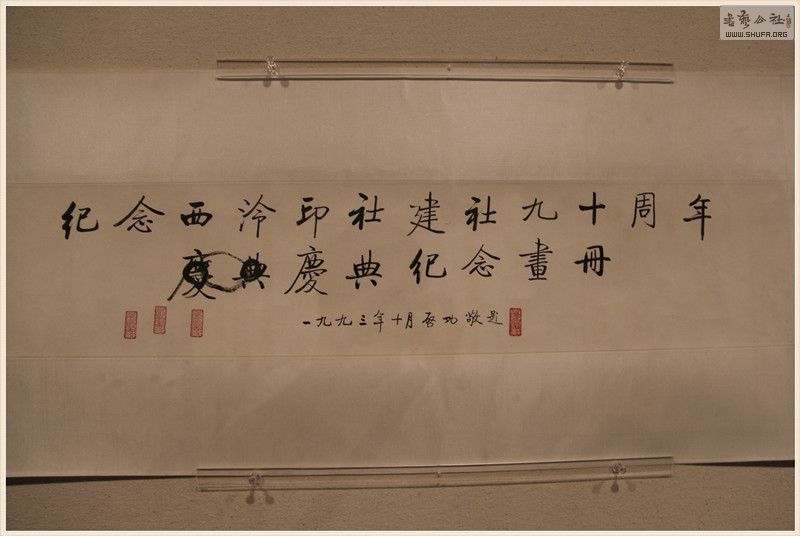 纪念西泠印社建社九十周年
慶典慶典纪念畫冊
一九九三年十月启功敬题
書藝公社
WWW.SHUFA.ORG